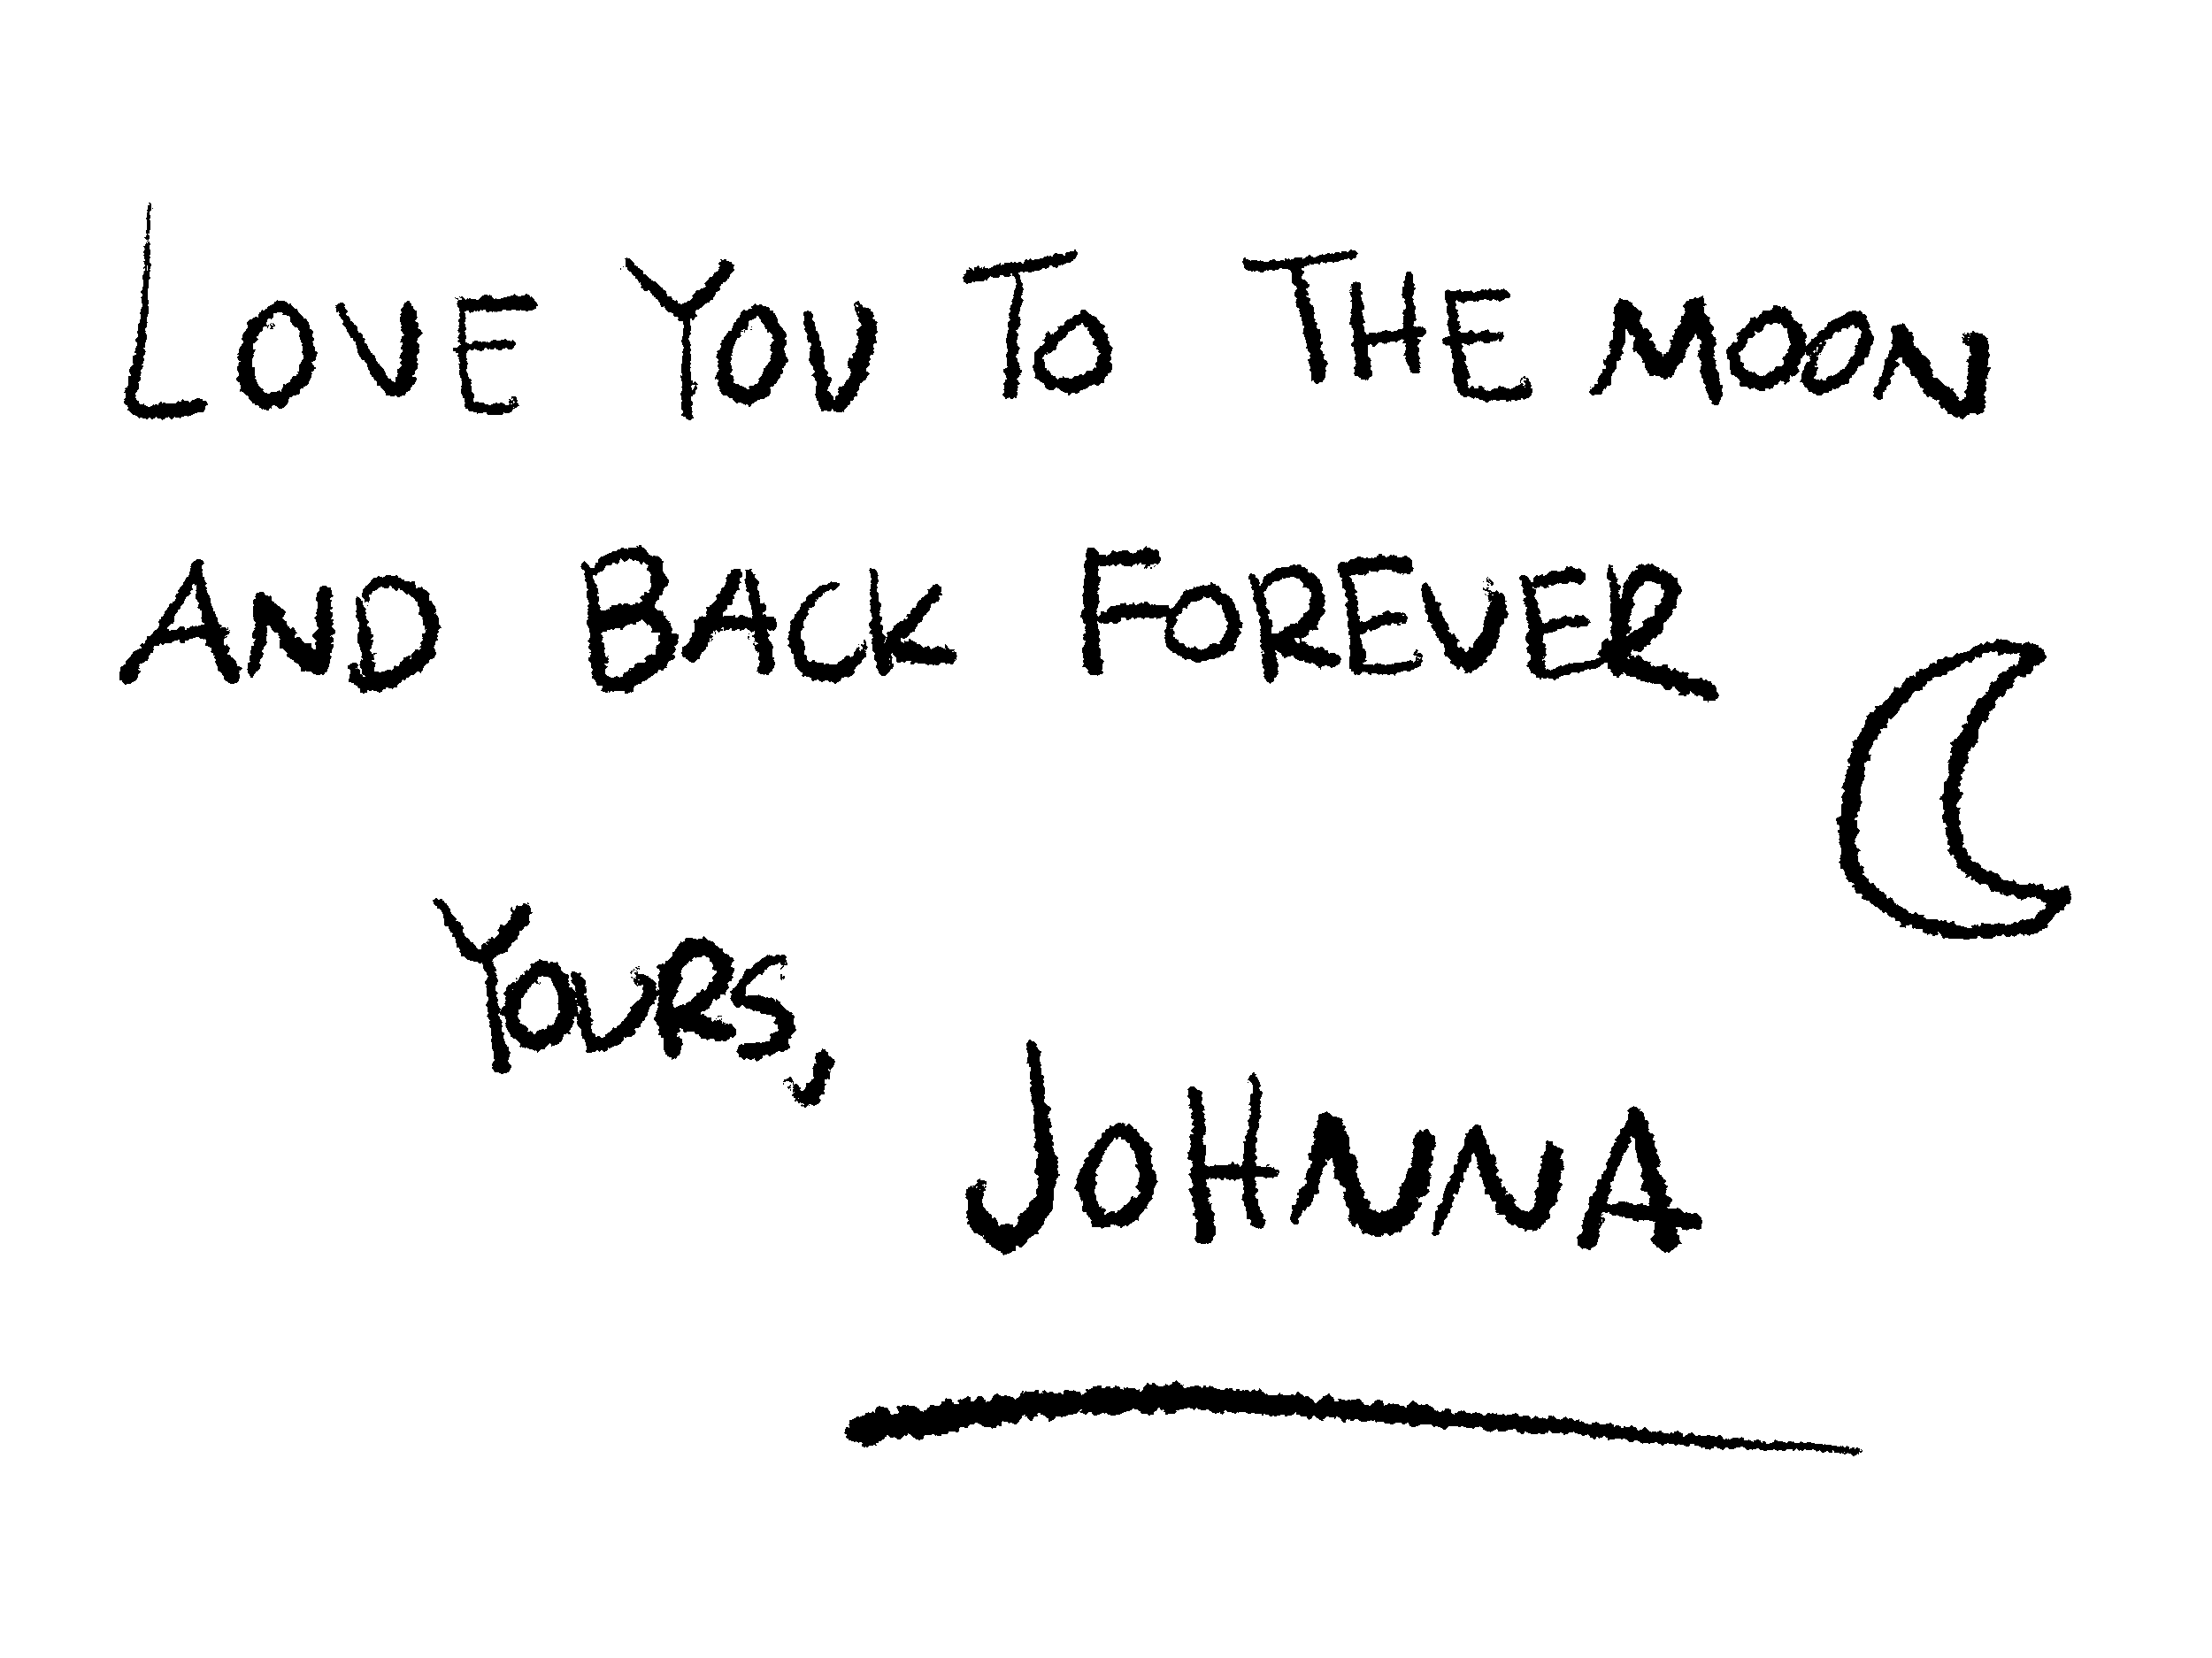 LOVE YOU TO THE MOON
AND BACK FOREVER
YOURS,
JOHNNA